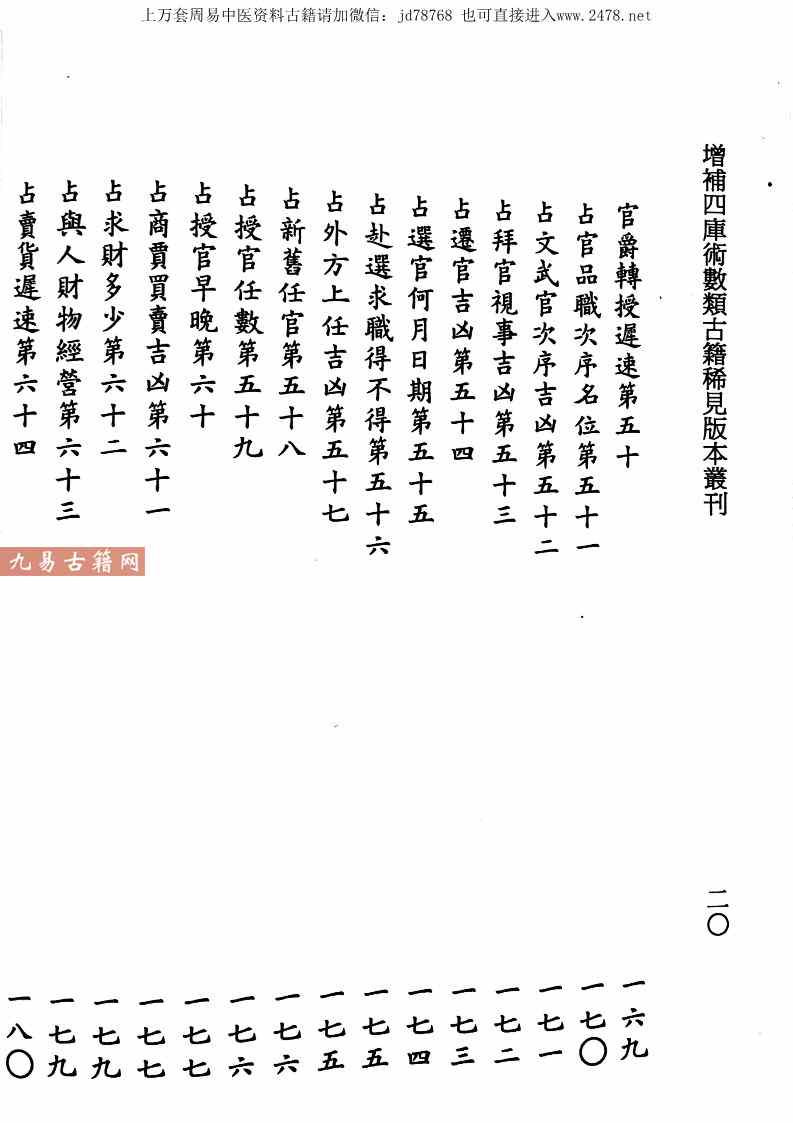 上万套周易中医资料古籍请加微信：jd78768 也可直接进入www.2478.net
增補四庫術數類古籍稀見版本叢刊
二〇
官爵轉授遲速第五十 一六九
占官品職次序名位第五十一 一七〇
占文武官次序吉凶第五十二 一七一
占拜官視事吉凶第五十三 一七二
占遷官吉凶第五十四 一七三
占選官何月日期第五十五 一七四
占赴選求職得不得第五十六 一七五
占外方上任吉凶第五十七 一七五
占新舊任官第五十八 一七六
占授官任數第五十九 一七六
占授官早晚第六十 一七七
占商賈買賣吉凶第六十一 一七七
占求財多少第六十二 一七九
占與人財物經營第六十三 一七九
占賣貨遲速第六十四 一八〇
九易古籍网